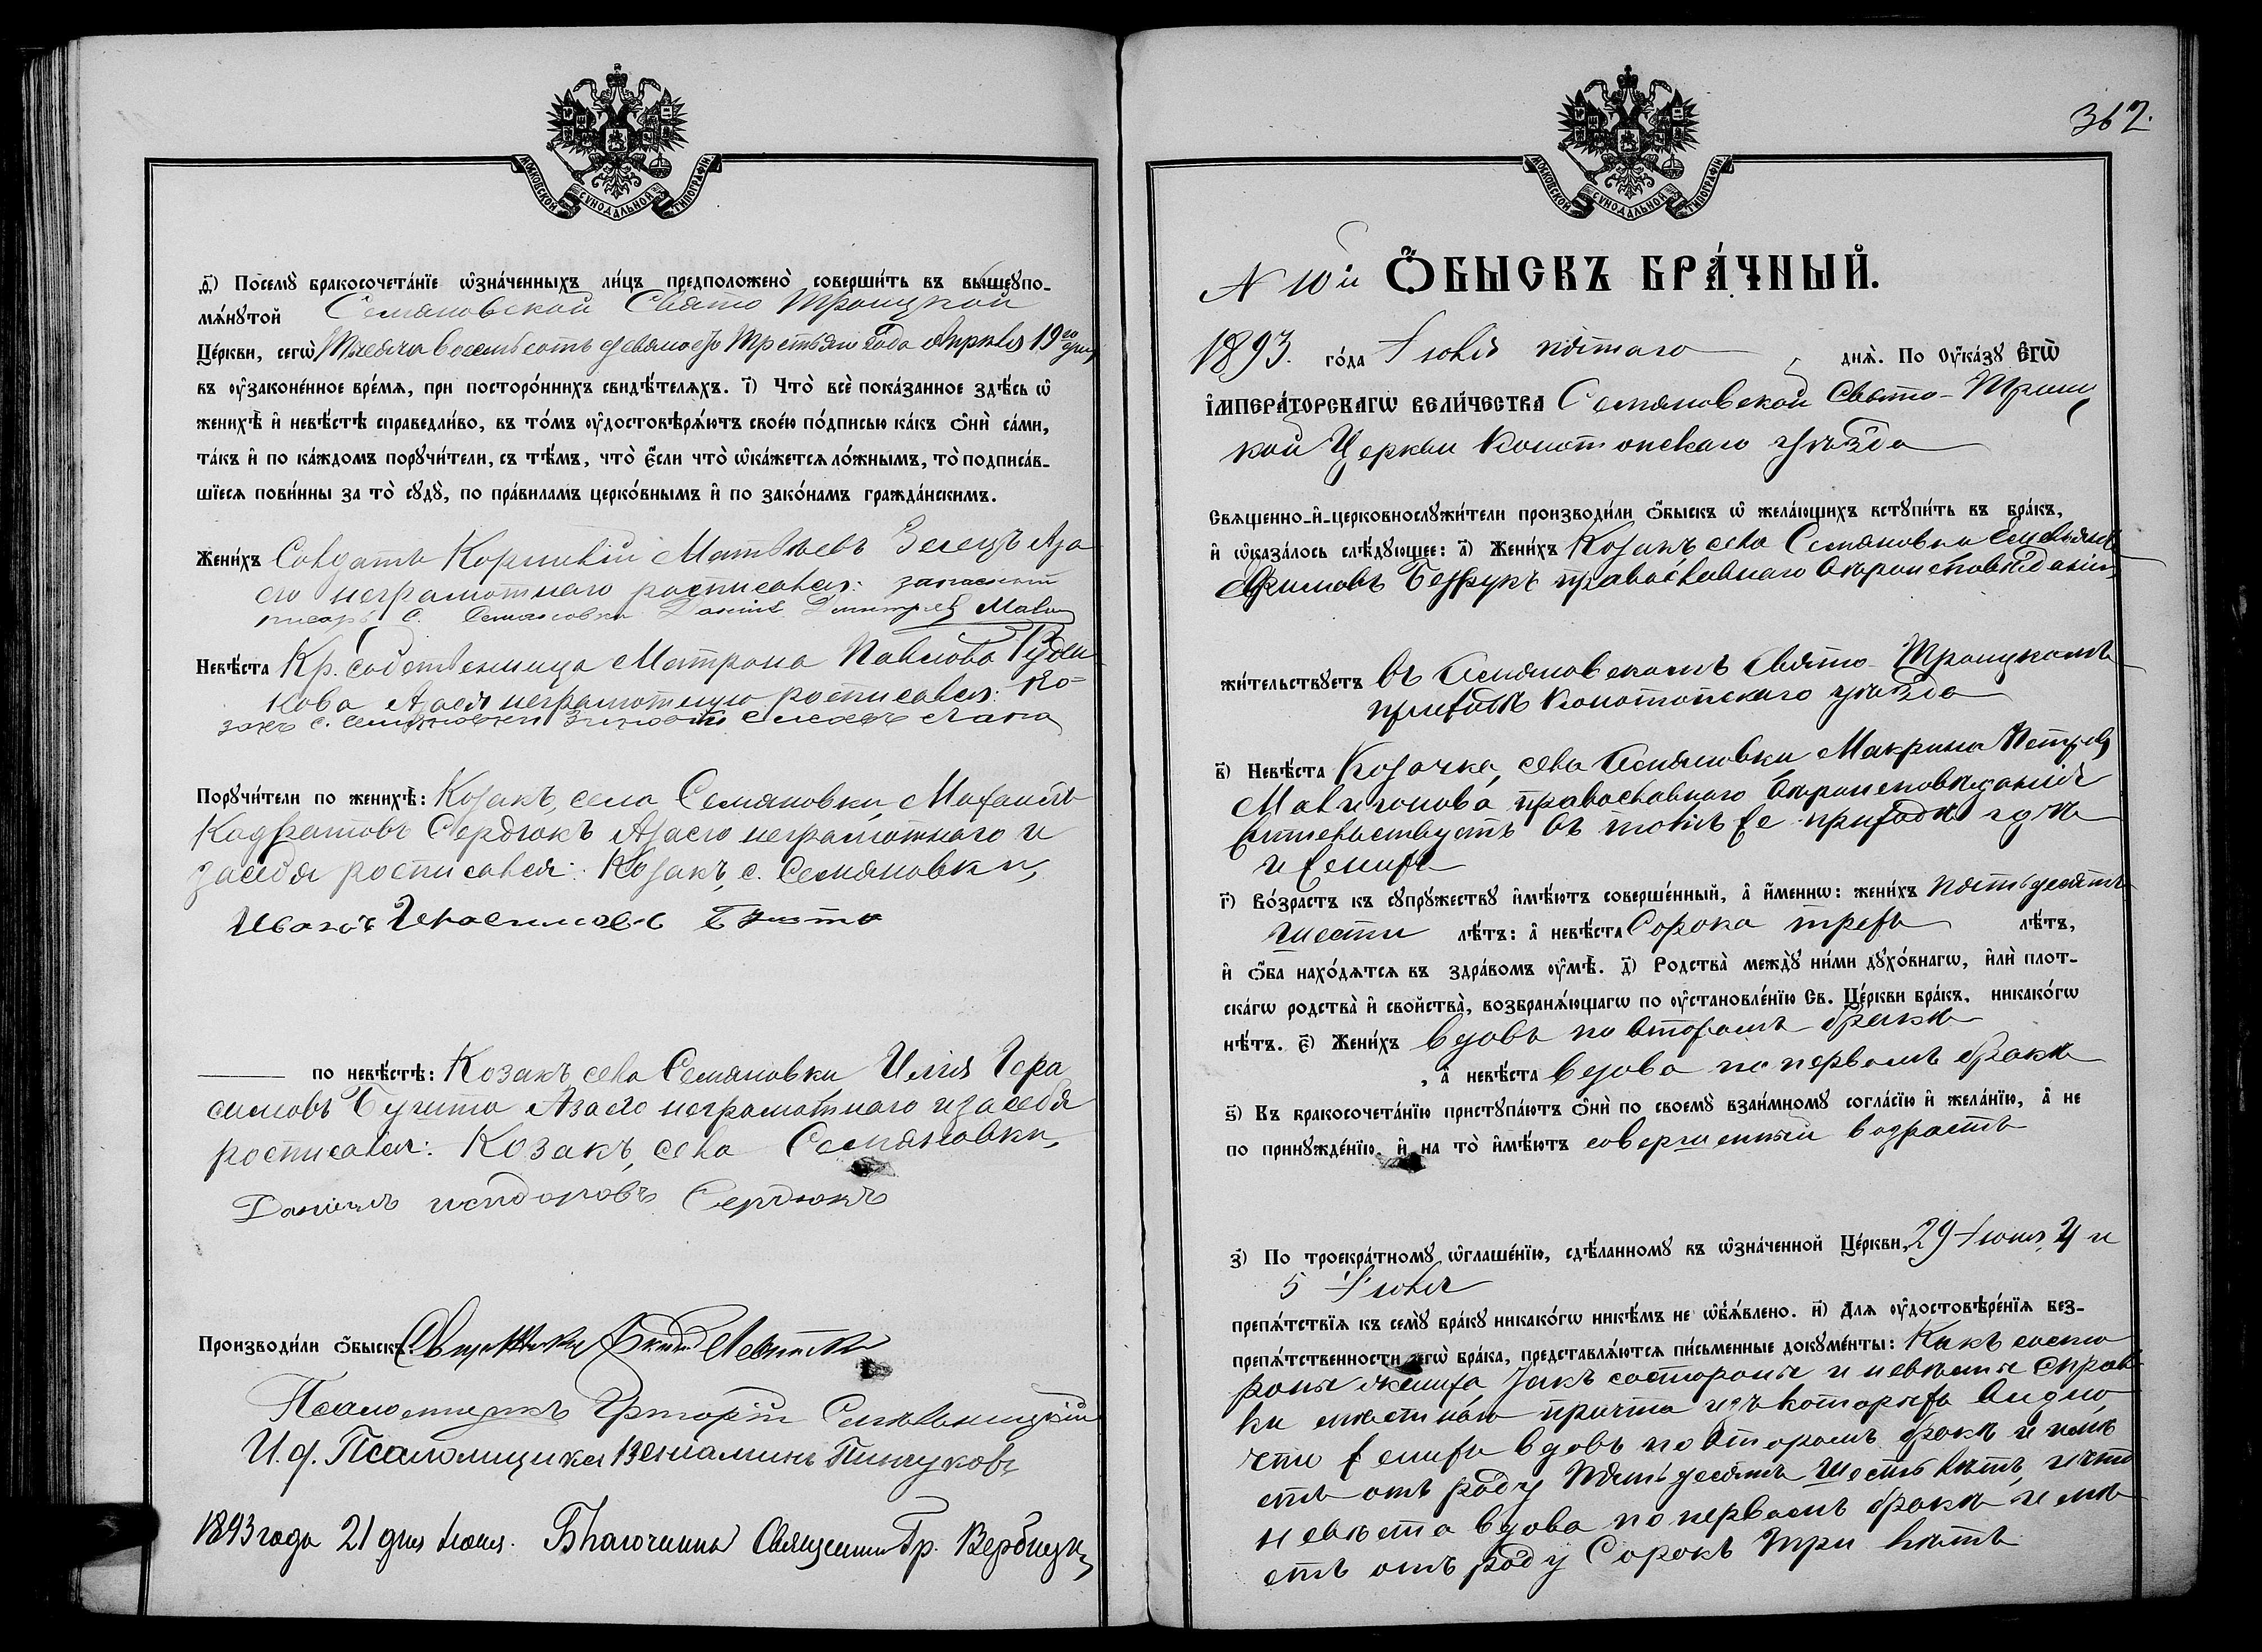 МОСКОВСКОЙ СѴНОДАЛЬНОЙ ТИПОГРАФІИ
ѳ҃) Посемꙋ̀ бракосочета́нїе ѡ҆зна́ченныхъ ли́цъ предположено̀ соверши́ть въ вышеꙋпо-
мѧ́нꙋтой Семяновской Свято Троицкой
Це́ркви, сегѡ̀ Тысяча восемьсотъ девяносто третьяго года Апрѣля 19го дня
въ ᲂу҆законе́нное вре́мѧ, при посторо́ннихъ свидѣ́телѧхъ. і҃) Что̀ всѐ пока́занное здѣ́сь ѡ҆
женихѣ̀ и҆ невѣ́стѣ справедли́во, въ то́мъ ᲂу҆достовѣрѧ́ютъ свое́ю по́дписью ка́къ ѻ҆нѝ са́ми,
та́къ и҆ по ка́ждомъ порꙋчи́тели, съ тѣ́мъ, что̀ є҆́сли что̀ ѡ҆ка́жетсѧ ло́жнымъ, то̀ подписа́в-
шїесѧ пови́нны за то̀ сꙋдꙋ̀, по пра́виламъ церко́внымъ и҆ по зако́намъ гражда́нскимъ.
Жени́хъ Солдатъ Корнилій Матвѣевъ Аза
его неграмотнаго росписался: запасный
писарь с. Семяновки Данiилъ Дмитріевъ
Невѣ́ста Кр. собственница Матрона Павлова
кова Азася неграмотную росписался: Ко-
закъ с. Семяновки
Порꙋчи́тели по женихѣ̀: Козакъ, села Семяновки,
Кодратовъ Сердюкъ Азасего неграмотнаго и
засебя росписался: Козакъ, с. Семяновки,
Иванъ Герасимовъ
по невѣ́стѣ: Козакъ, села Семяновки Илія Гера
симовъ Азасего неграмотнаго и засебя
росписался: Козакъ, села Семяновки,
Даніилъ исидоровъ Сердюкъ
Производи́ли ѻ҆́быскъ: Священникъ
Псаломщикъ Григорій
И. д. Псаломщика Веніаминъ Пинчуковъ
1893 года 21 дня Іюня. Благочинный Священникъ Гр. Вербицкій
362.
МОСКОВСКОЙ СѴНОДАЛЬНОЙ ТИПОГРАФІИ
N 10й ѺБЫСКЪ БРА́ЧНЫЙ.
1893. го́да Іюля пятаго днѧ̀. По Оу҆ка́зꙋ Є҆гѡ̀
І҆мпера́торскагѡ Вели́чества Семяновской Свято-Троиц
кой Церкви Конотопскаго уѣзда
Свѧщенно-и҆-церковнослꙋжи́тели производи́ли ѻ҆́быскъ ѡ҆ жела́ющихъ встꙋпи́ть въ бра́къ,
и҆ ѡ҆каза́лось слѣ́дꙋющее: а҃) Жени́хъ Козакъ, села Семяновки Емельянъ
православнаго вѣроисповѣданія,
жи́тельствꙋетъ въ Семяновскомъ Свято-Троицкомъ
приходѣ Конотопскаго уѣзда
в҃) Невѣ́ста Козачка, села Семяновки Макрина Петрова
православнаго вѣроисповѣданія
жительствуетъ въ томъ же приходѣ гдѣ
и женихъ
г҃) Во́зрастъ къ сꙋпрꙋ́жествꙋ и҆мѣ́ютъ соверше́нный, а҆ и҆́меннѡ: жени́хъ пятьдесятъ
шести лѣ́тъ: а҆ невѣ́ста Сорока трехъ лѣ́тъ,
и҆ ѻ҆́ба нахо́дѧтсѧ въ здра́вомъ ᲂу҆мѣ̀. д҃) Родства̀ междꙋ̀ ни́ми дꙋхо́внагѡ, и҆лѝ плот-
ска́гѡ родства̀ и҆ свойства̀, возбранѧ́ющагѡ по ᲂу҆становле́нїю Св. Це́ркви бра́къ, никако́гѡ
нѣ́тъ. є҃) Жени́хъ вдовъ по второмъ бракѣ
, а҆ невѣ́ста вдова по первомъ бракѣ
ѕ҃) Въ бракосочета́нїю пристꙋпа́ютъ ѻ҆нѝ по своемꙋ̀ взаи́мномꙋ согла́сїю и҆ жела́нїю, а҆ не
по принꙋжде́нїю, и҆ на то̀ и҆мѣ́ютъ совершенный возрастъ
з҃) По троекра́тномꙋ ѡ҆глаше́нїю, сдѣ́ланномꙋ въ ѡ҆зна́ченной Це́ркви, 29 Іюня, 4 и
5 Іюля
препѧ́тствїѧ къ семꙋ̀ бра́кꙋ никако́гѡ никѣ́мъ не ѡ҆б̾ѧ́влено. и҃) Для ᲂу҆достовѣре́нїѧ без-
препѧ́тственности сегѡ̀ бра́ка, представлѧ́ютсѧ пи́сьменные докꙋме́нты: Какъ состо
роны жениха такъ состороны и невѣсты справ
ки мѣстнаго причта изъ которыхъ видно,
что женихъ вдовъ по второмъ бракѣ и имѣ
етъ отъ роду пятьдесятъ шесть лѣтъ, и что
невѣста вдова по первомъ бракѣ и имѣ
етъ отъ роду Сорокъ три лѣтъ